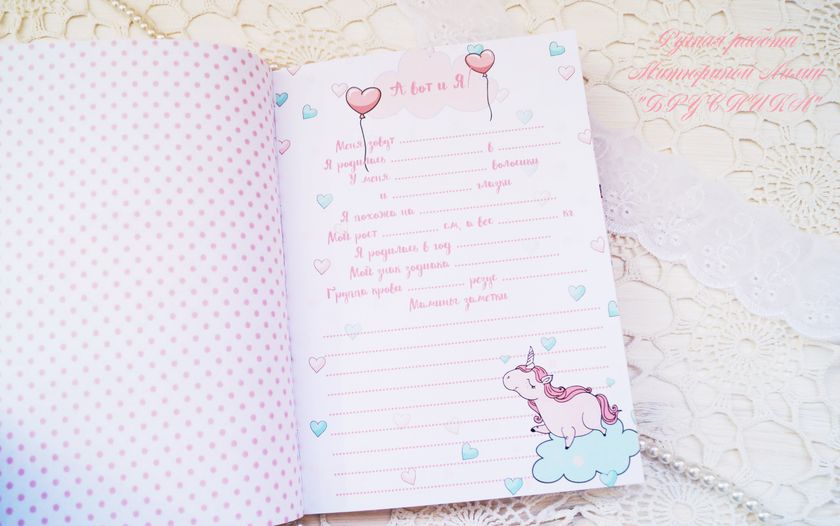 А вот и Я
Меня зовут
Я родилась в
У меня волосики
и глазки
Я похожа на
Мой рост см, а вес кг
Я родилась в год
Мой знак зодиака
Группа крови резус
Мамины заметки
Ручная работа
Митюриной Лилии
"БРУСНИКА"